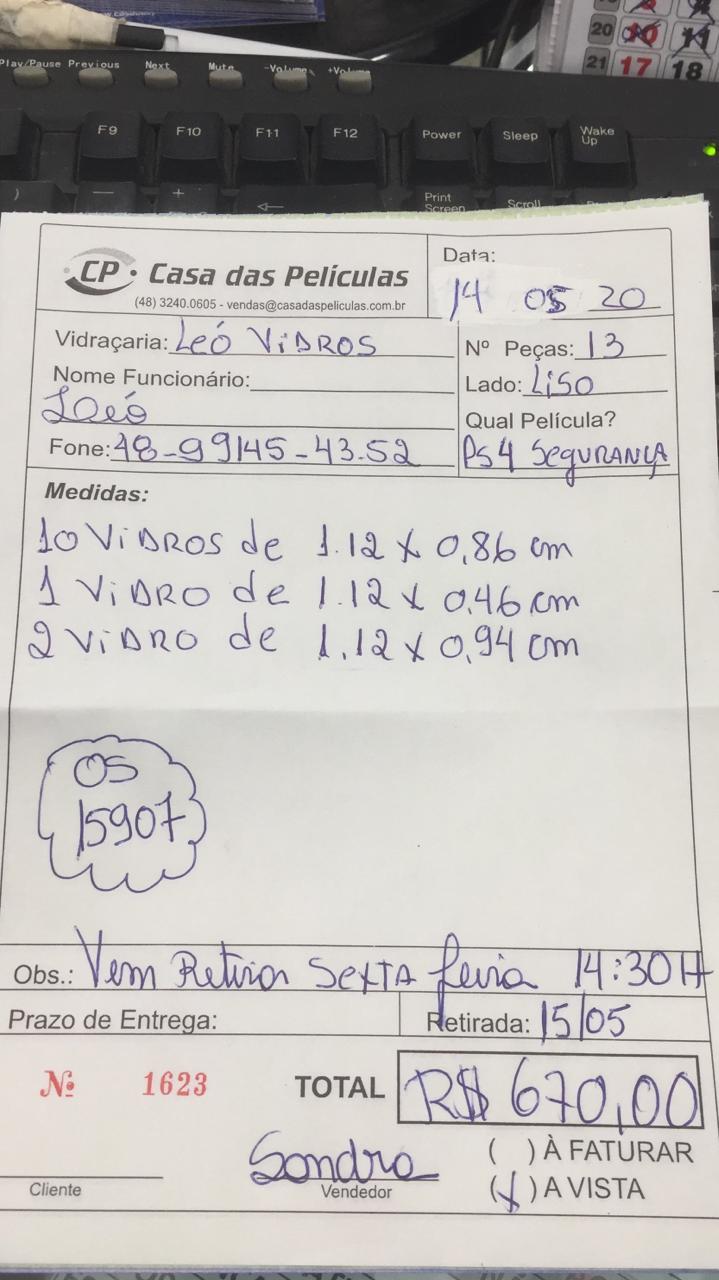 Play/Pause Previous Next Mute -Volume +Volume
20 10 11
21 17 18
F9 F10 F11 F12 Power Sleep Wake Up
Print Screen Scroll
CP Casa das Películas
(48) 3240.0605 - vendas@casadaspeliculas.com.br
Data:
14 05 20
Vidraçaria: Leó ViDROS
Nº Peças: 13
Nome Funcionário:
Lado: Liso
Leó
Qual Película?
Fone: 48-99145-43.52
PS4 SegURANÇA
Medidas:
10 ViDROS de 1.12 x 0,86 cm
1 ViDRO de 1.12 x 0,46 cm
2 ViDRO de 1.12 x 0,94 cm
OS
15907
Obs.: Vem Retirar SexTA feria 14:30H
Prazo de Entrega:
Retirada: 15/05
Nº 1623
TOTAL R$ 670,00
( ) À FATURAR
Sondra
Cliente
Vendedor
(x) A VISTA